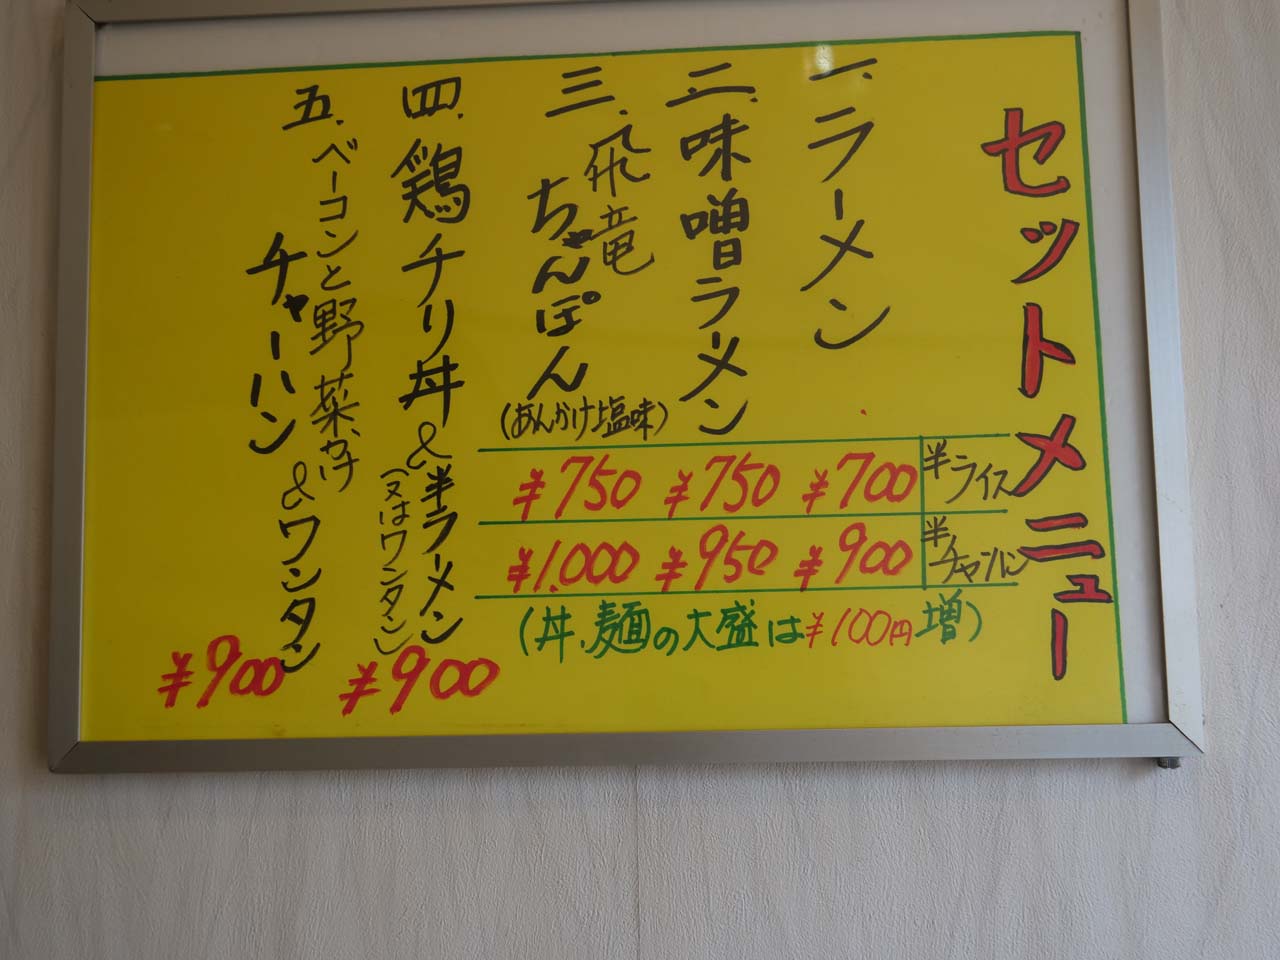 セットメニュー
一.ラーメン
二.味噌ラーメン
三.飛竜
ちゃんぽん
(あんかけ塩味)
半ライス
¥700
¥750
¥750
半チャーハン
¥900
¥950
¥1.000
(丼、麺の大盛は¥100円増)
四.鶏チリ丼&半ラーメン
(又はワンタン)
¥900
五.ベーコンと野菜かけ
チャーハン&ワンタン
¥900